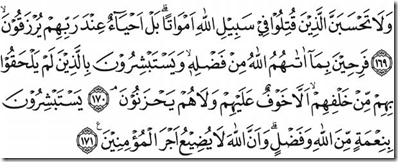 وَلَا تَحْسَبَنَّ الَّذِينَ قُتِلُوا فِي سَبِيلِ اللَّهِ أَمْوَاتًا ۚ بَلْ أَحْيَاءٌ عِنْدَ رَبِّهِمْ يُرْزَقُونَ
١٦٩ فَرِحِينَ بِمَا آتَاهُمُ اللَّهُ مِنْ فَضْلِهِ ۙ وَيَسْتَبْشِرُونَ بِالَّذِينَ لَمْ يَلْحَقُوا
بِهِمْ مِنْ خَلْفِهِمْ ۙ أَلَّا خَوْفٌ عَلَيْهِمْ وَلَا هُمْ يَحْزَنُونَ ١٧٠ يَسْتَبْشِرُونَ
بِنِعْمَةٍ مِنَ اللَّهِ وَفَضْلٍ ۙ وَأَنَّ اللَّهَ لَا يُضِيعُ أَجْرَ الْمُؤْمِنِينَ ١٧١